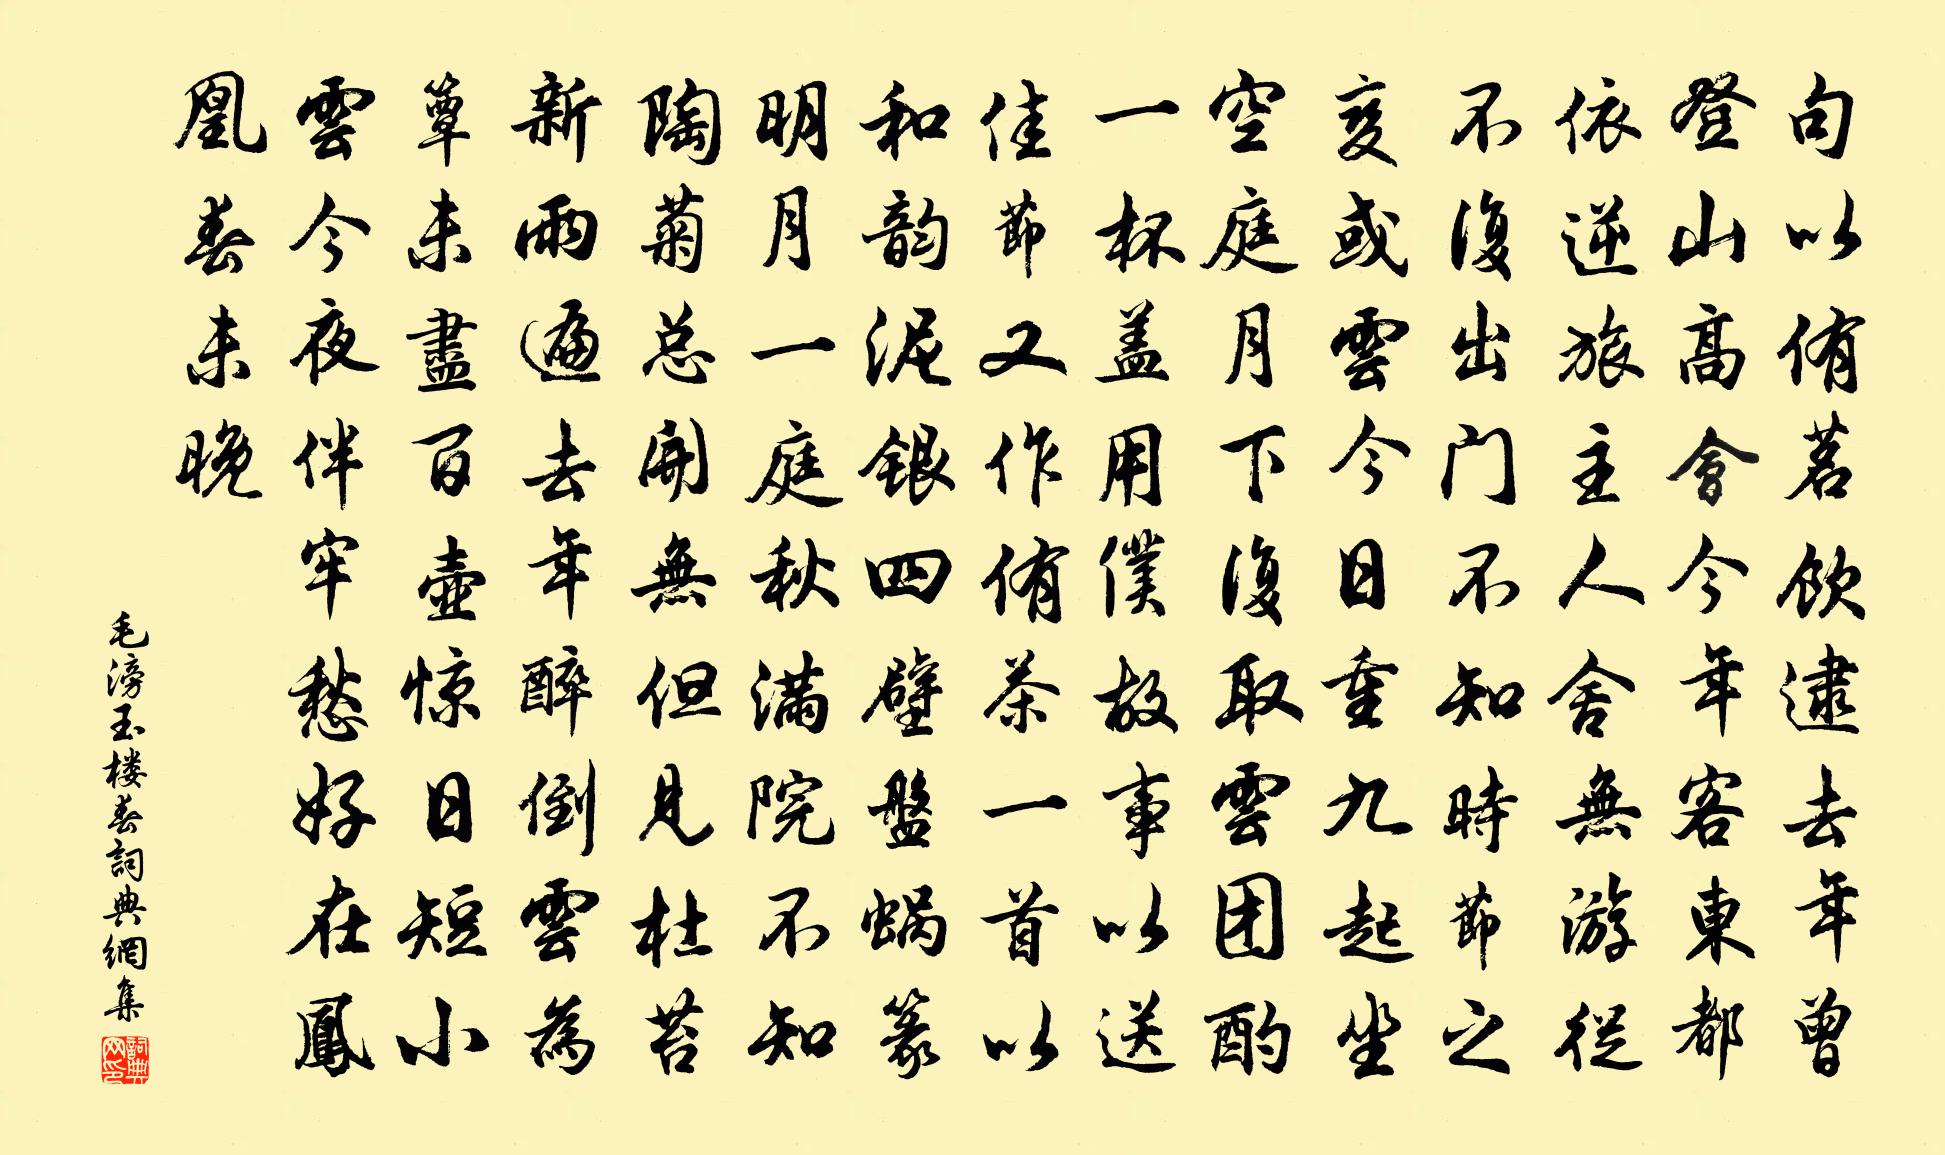 句以侑茗飲逮去年曾
登山高會今年客東都
依逆旅主人舍無游從
不復出门不知時節之
变或雲今日重九起坐
空庭月下復取雲团酌
一杯盖用僕故事以送
佳節又作侑茶一首以
和韵泥銀四壁盤蜗篆
明月一庭秋滿院不知
陶菊总開無但見杜苔
新雨遍去年醉倒雲為
簟未盡百壶惊日短小
雲今夜伴牢愁好在鳳
凰春未晚
毛滂玉楼春詞典網集
詞典网印